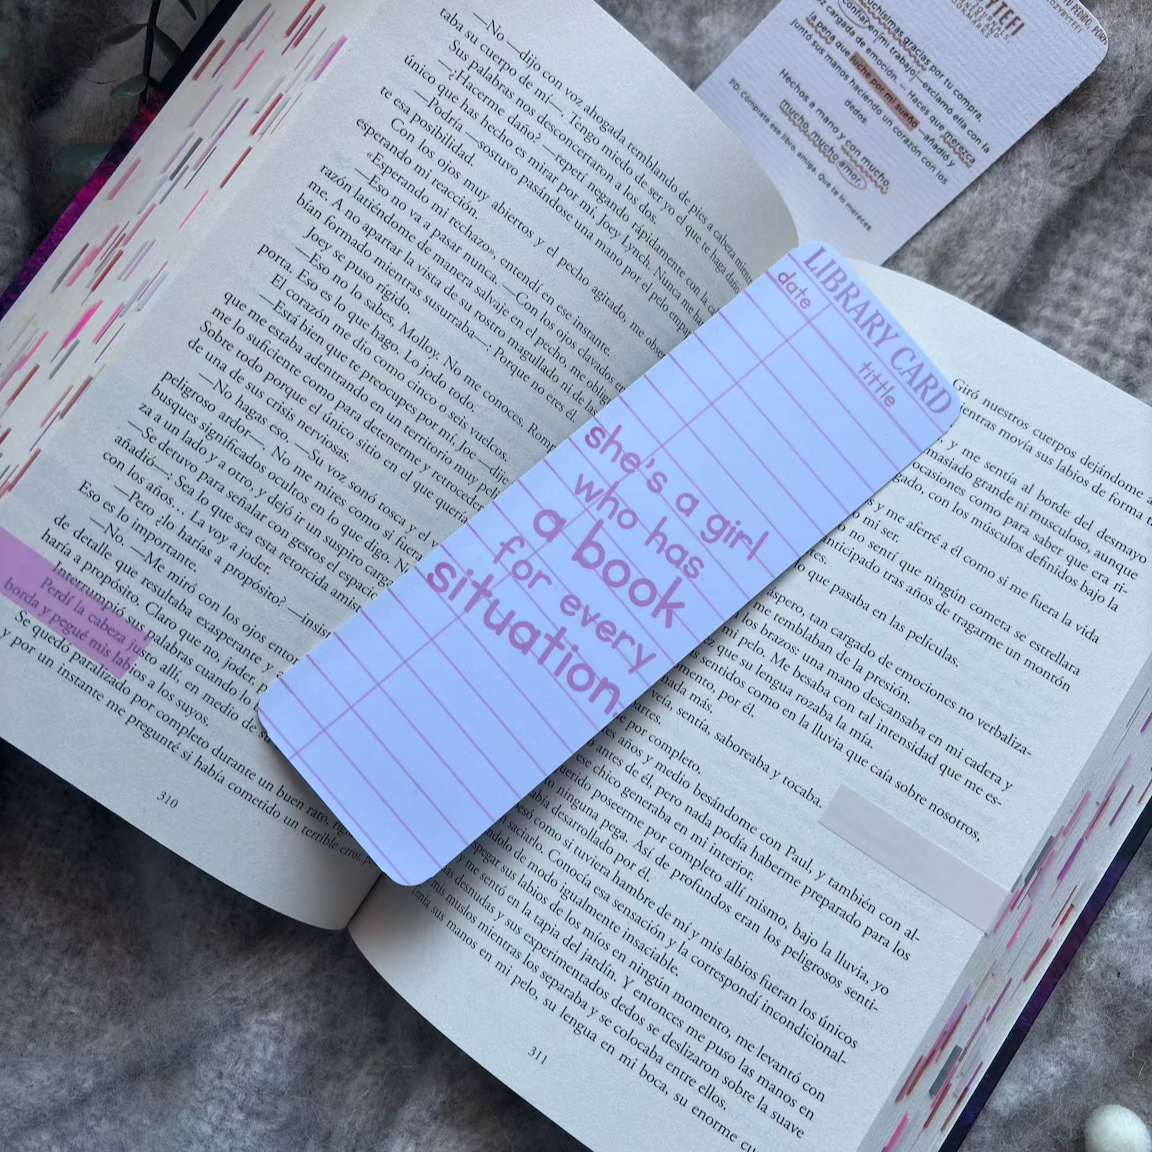 —No —dijo con voz ahogada, temblando de pies a cabeza
taba su cuerpo de mí—. Tengo miedo de ser yo el que te haga daño
Sus palabras nos desconcertaron a los dos.
—¿Hacerme daño? —repetí negando rápidamente con la
único que has hecho es mirar por mí, Joey Lynch. Nunca me ha
—Podría —sostuvo pasándose una mano por el pelo
te esa posibilidad.
Con los ojos muy abiertos y el pecho agitado, me
esperando mi reacción.
«Esperando mi rechazo», entendí en ese instante.
—Eso no va a pasar nunca. —Con los ojos clavados
razón latiéndome de manera salvaje en el pecho, me
me. A no apartar la vista de su rostro magullado ni de
bían formado mientras susurraba—: Porque no eres él.
Joey se puso rígido.
—Eso no lo sabes, Molloy. No me conoces.
porta. Eso es lo que hago. Lo jodo todo.
El corazón me dio como cinco o seis vuelcos.
—Está bien que te preocupes por mí, Joe
que me estaba adentrando en un territorio muy
me lo suficiente como para detenerme y
Sobre todo porque el único sitio en el que
de una de sus crisis nerviosas.
—No hagas eso. —Su voz sonó tosca y
peligroso ardor—. No me mires como si
busques significados ocultos en lo que digo.
za a un lado y a otro, y dejó ir un suspiro
—Se detuvo para señalar con gestos el
añadió—: Sea lo que sea esta retorcida
con los años… La voy a joder.
—Pero ¿lo harías a propósito?
Eso es lo importante.
—No. —Me miró con los ojos
de detalle, que resultaba exasperante
haría a propósito. Claro que no, joder,
Interrumpió sus palabras cuando
Perdí la cabeza justo allí, en medio de
borda y pegué mis labios a los suyos.
Se quedó paralizado por completo durante un buen rato,
y por un instante me pregunté si había cometido un terrible error
310
LIBRARY CARD
date
tittle
she's a girl
who has
a book
for every
situation.
Giró nuestros cuerpos dejándome
mientras movía sus labios de forma
y me sentía al borde del desmayo
demasiado grande ni musculoso, aunque
ocasiones como para saber que era
con los músculos definidos bajo la
y me aferré a él como si me fuera la vida
mi ser.
no sentí que ningún cometa se estrellara
tras años de tragarme un montón
lo que pasaba en las películas.
tan cargado de emociones no verbaliza-
me temblaban de la presión.
los brazos: una mano descansaba en mi cadera y
mi pelo. Me besaba con tal intensidad que me es-
que su lengua rozaba la mía.
sentidos como en la lluvia que caía sobre nosotros,
por él.
veía, sentía, saboreaba y tocaba.
por completo.
años y medio besándome con Paul, y también con al-
antes de él, pero nada podía haberme preparado para los
ese chico generaba en mi interior.
poseerme por completo allí mismo, bajo la lluvia, yo
ninguna pega. Así de profundos eran los peligrosos senti-
desarrollado por él.
como si tuviera hambre de mí y mis labios fueran los únicos
saciarlo. Conocía esa sensación y la correspondí incondicional-
de modo igualmente insaciable.
pegar sus labios de los míos en ningún momento, me levantó con
y me sentó en la tapia del jardín. Y entonces me puso las manos en
desnudas y sus experimentados dedos se deslizaron sobre la suave
mis muslos mientras los separaba y se colocaba entre ellos.
manos en mi pelo, su lengua en mi boca, su enorme
311
muchísimas gracias por tu compra.
confiar en mi trabajo! —exclamó ella con la
cargada de emoción.— Haces que merezca
la pena que luche por mi sueño —añadió y
juntó sus manos haciendo un corazón con los
dedos.
Hechos a mano y con mucho,
mucho, mucho amor.
PD: Cómprate ese libro, amiga. Que te lo mereces.